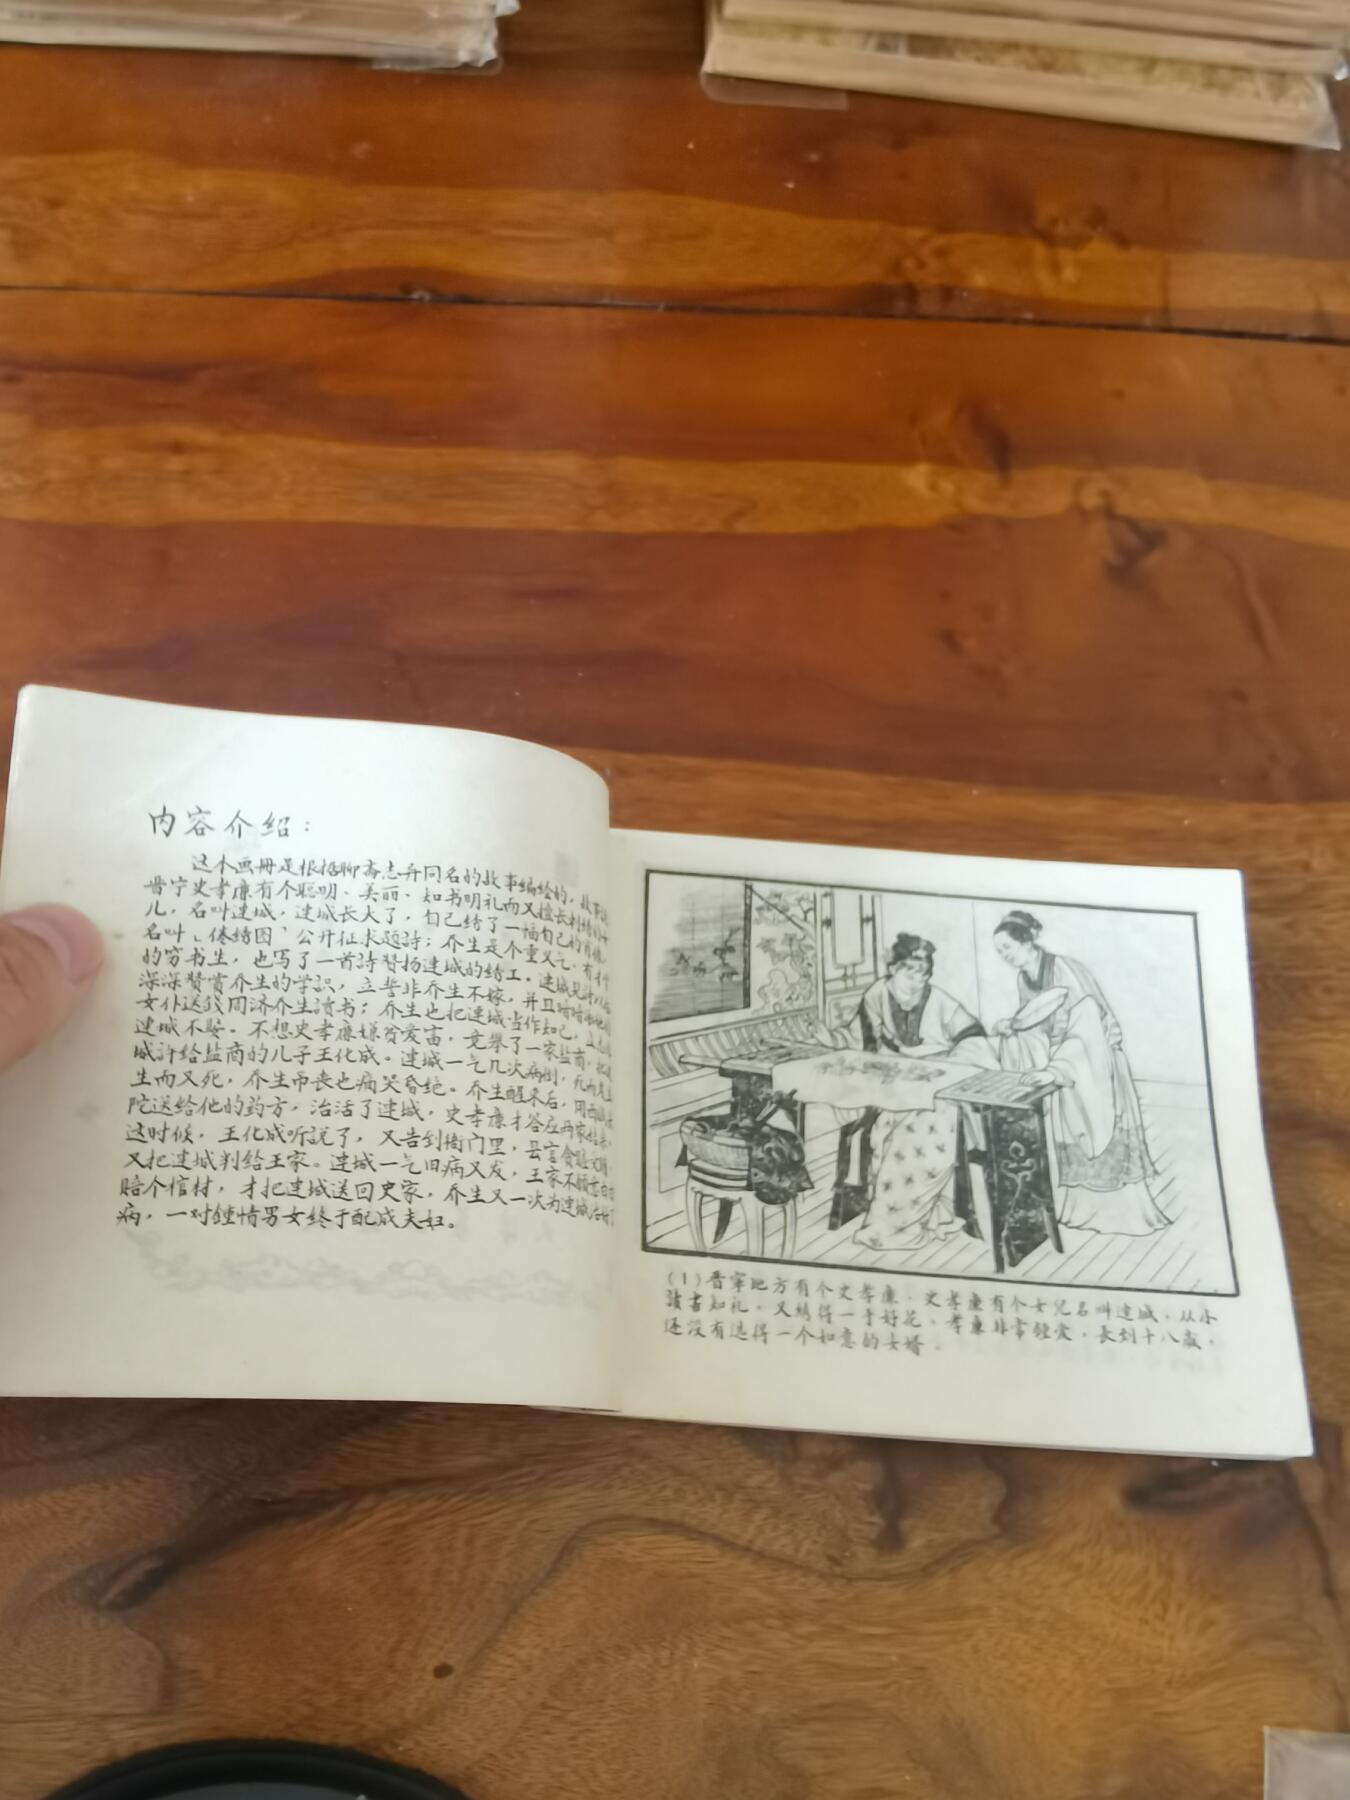 内容介绍：
这个画册是根据聊斋志异同名的故事编绘的，故事说
晋宁史孝廉有个聪明、美丽、知书明礼而又擅长刺绣的女
儿，名叫连城，连城长大了，自己绣了一幅自己的肖像，
名叫“倦绣图”公开征求题詩；乔生是个重义气、有才学
的穷书生，也写了一首詩赞扬連城的绣工。連城見詩以后
深深赞赏乔生的学識，立誓非乔生不嫁，并且暗暗
女仆送錢周济乔生讀书；乔生也把連城当作知己，
連城不娶。不想史孝廉嫌贫爱富，竟攀了一家盐商，把連
城許给盐商的儿子王化成。連城一气几次病倒，死而复
生而又死，乔生吊丧也痛哭昏绝。乔生醒来后，用西域
陀送给他的药方，治活了連城，史孝廉才答应两家結亲。
这时候，王化成听説了，又告到衙门里，县官貪赃
又把連城判给王家。連城一气旧病又发，王家不願意白白
赔个棺材，才把連城送回史家，乔生又一次为連城治好了
病，一对鍾情男女终于配成夫妇。
(1)晋寧地方有个史孝廉，史孝廉有个女兒名叫連城，从小
讀書知礼，又綉得一手好花，孝廉非常鍾爱，長到十八歲，
还没有选得一个如意的女婿。